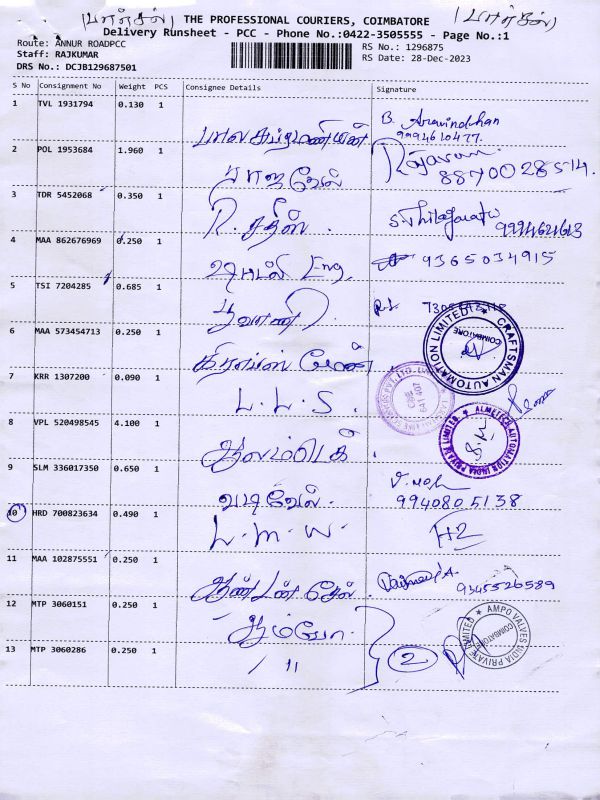 (பார்சல்) THE PROFESSIONAL COURIERS, COIMBATORE (பார்சல்)
Delivery Runsheet - PCC - Phone No.:0422-3505555 - Page No.:1
Route: ANNUR ROADPCC RS No.: 1296875
Staff: RAJKUMAR RS Date: 28-Dec-2023
DRS No.: DCJB129687501
S No Consignment No Weight PCS Consignee Details Signature
1 TVL 1931794 0.130 1 பாலசுப்ரமணியன் B. Aravindhan
9994610477.
2 POL 1953684 1.960 1 ராஜவேல் Rajaram
8870028514.
3 TDR 5452068 0.350 1 R. சதீஸ்
9994621613
4 MAA 862676969 0.250 1 Eng 9365034915
5 TSI 7204285 0.685 1
CRAFTSMAN AUTOMATION LIMITED
COIMBATORE
6 MAA 573454713 0.250 1
7 KRR 1307200 0.090 1 L.L.S.
CBE
641 407
8 VPL 520498545 4.100 1
ALMETECH AUTOMATION INDIA PRIVATE LIMITED
9 SLM 336017350 0.650 1 வடிவேல்
9940805138
10 HRD 700823634 0.490 1 L.M.W.
11 MAA 102875551 0.250 1
9345526589
12 MTP 3060151 0.250 1
AMPO VALVES INDIA PRIVATE LIMITED
COIMBATORE
13 MTP 3060286 0.250 1 〃 2